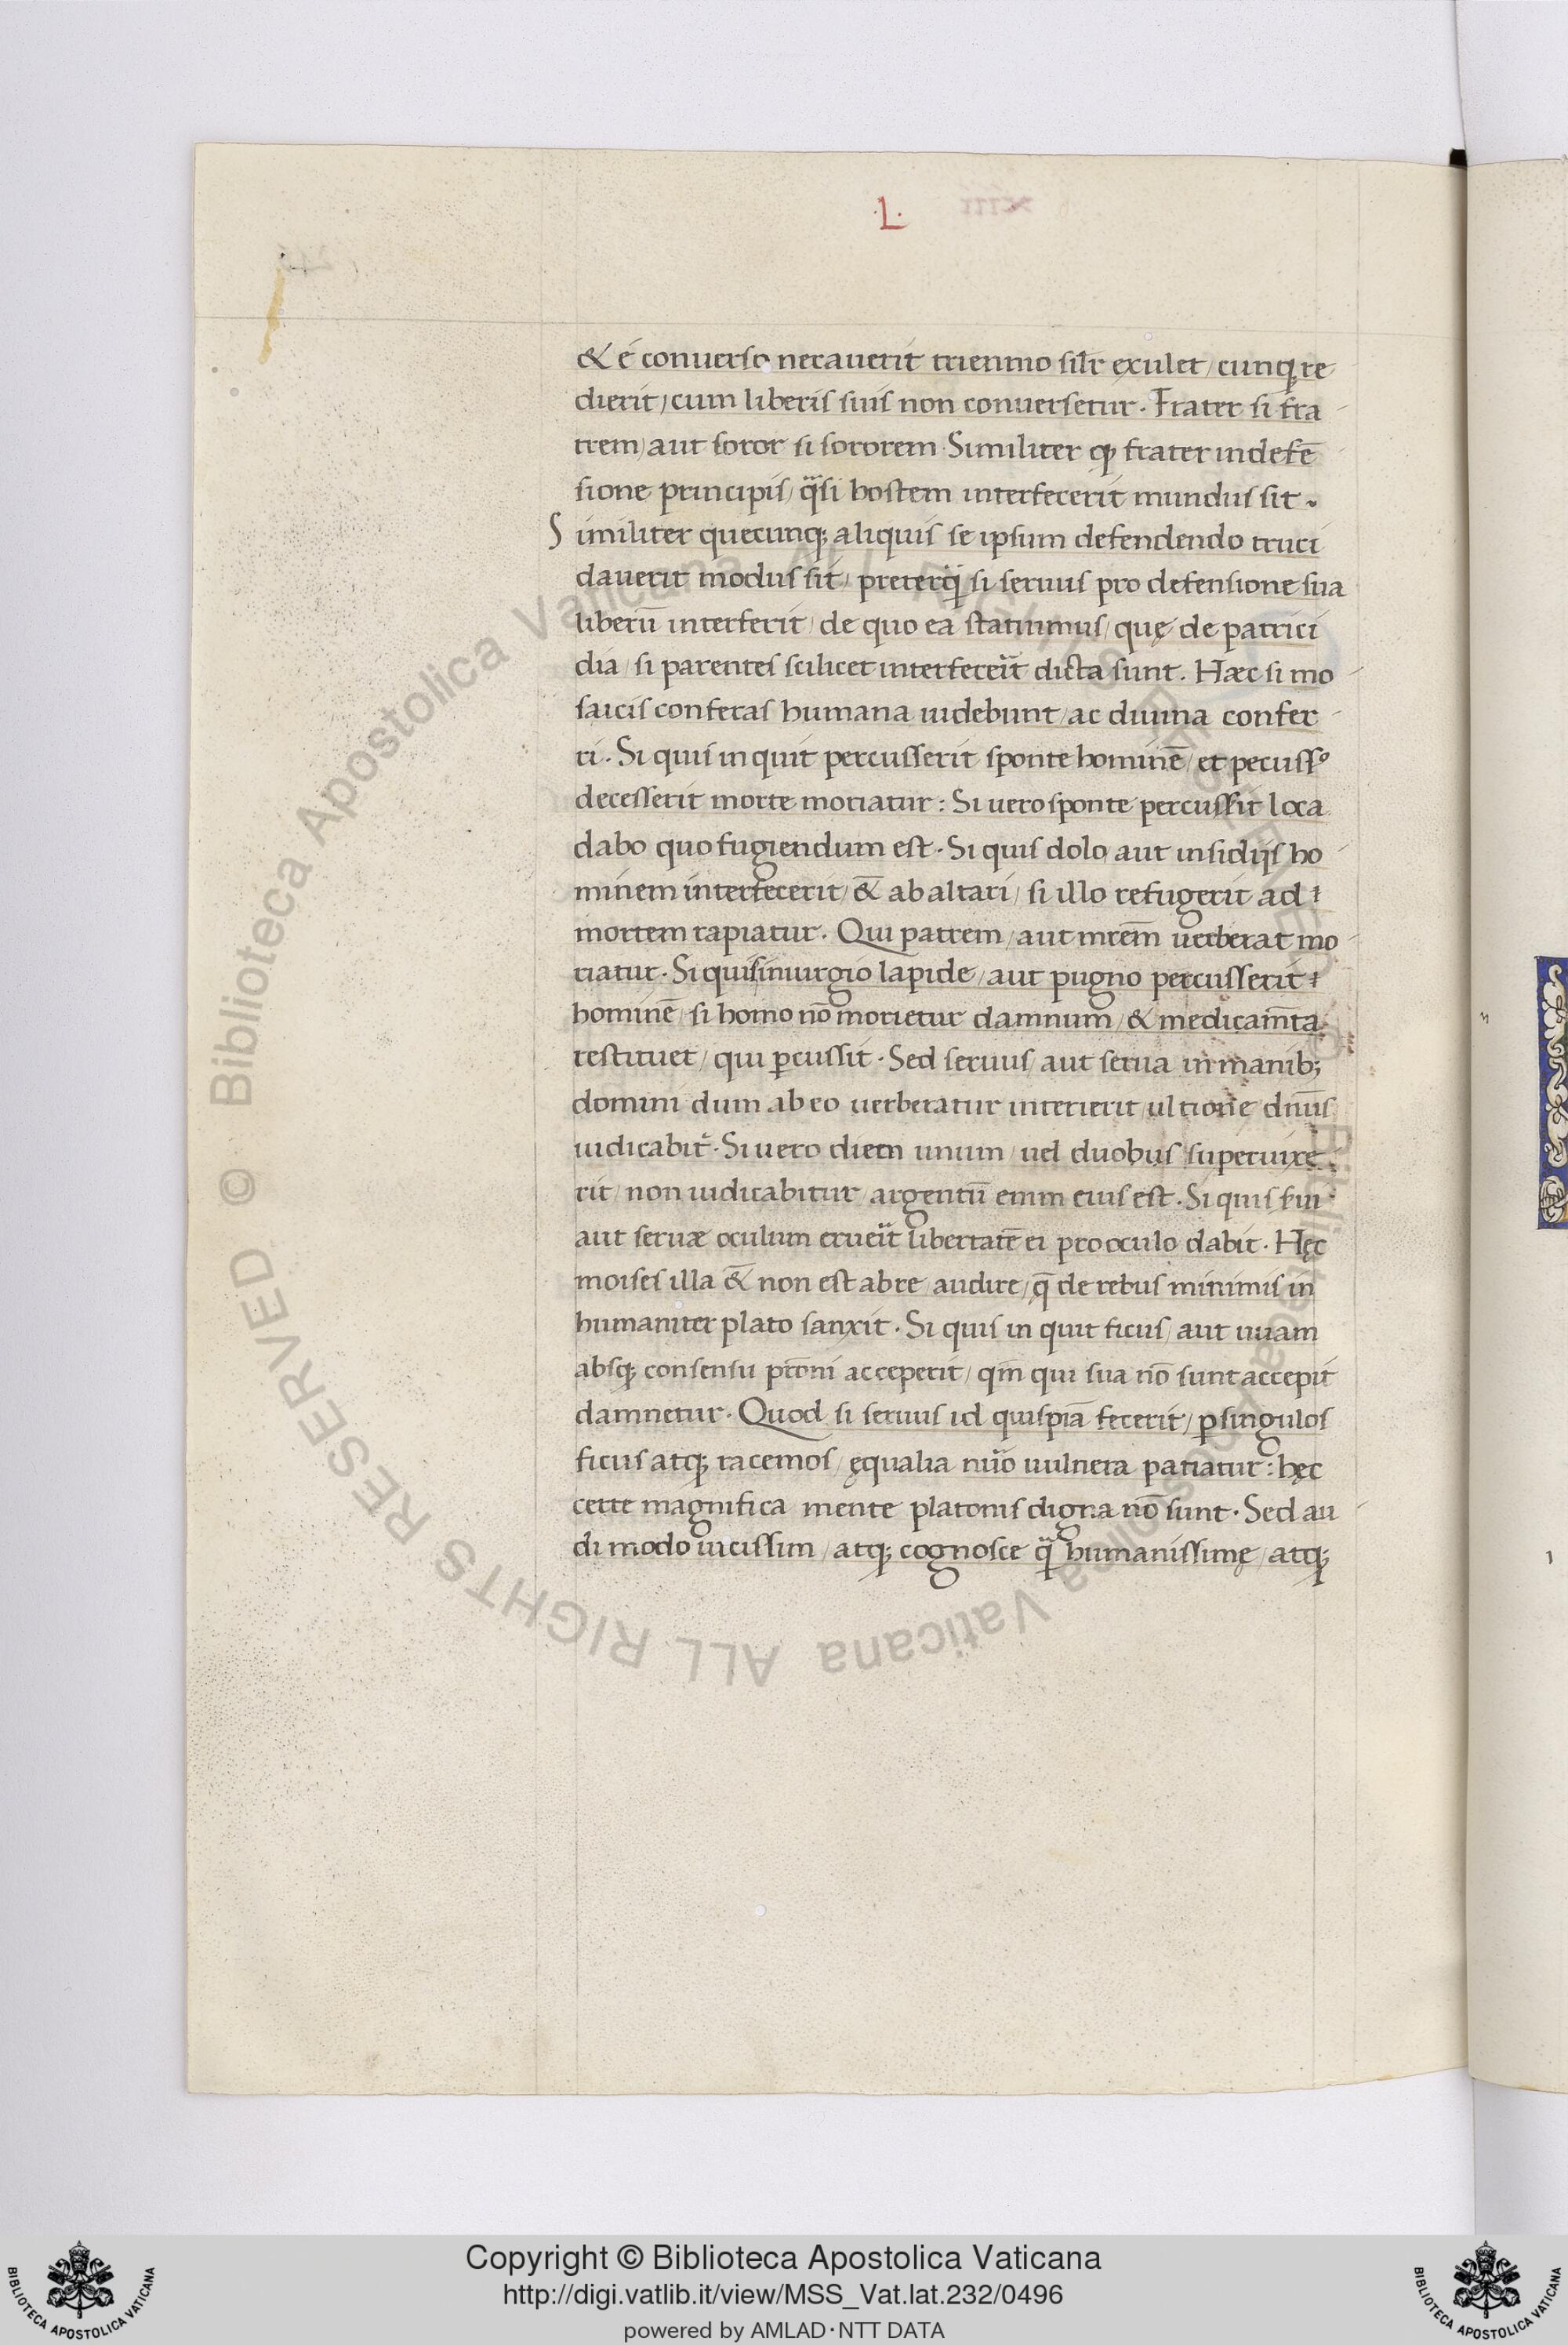 ·L·
& é conuerso necauerit triennio silr̄ exulet / cunq; re
dierit / cum liberis suis non conuersetur. Frater si fra
trem / aut soror si sororem. Similiter q; frater in defē
sione principis / q̈si hostem interfecerit mundus sit.
Similiter quecunq; aliquis se ipsum defendendo truci
dauerit modus sit / preterq̈ si seruus pro defensione sua
liberū interferit / de quo ea statuimus / quę de patrici
dia / si parentes scilicet interfecer̄it dicta sunt. Hæc si mo
saicis conferas humana uidebunt / ac diuina confer
ri. Si quis inquit percusserit sponte hominē / et pecussº
decesserit morte moriatur: Si uero sponte percussit loca
dabo quo fugiendum est. Si quis dolo aut insidijs ho
minem interfecerit / &̄ ab altari / si illo refugerit ad
mortem rapiatur. Qui patrem / aut mr̄em uerberat mo
riatur. Si quis in iurgio lapide / aut pugno percusserit
hominē / si homo nō morietur damnum / & medicam̄ta
restituet / qui p̱cussit. Sed seruus / aut serua in manib;
domini dum ab eo uerberatur interierit / ultione dn̄us
iudicabit̄. Si uero diem unum / uel duobus superuixe
rit / non iudicabitur / argentū enim eius est. Si quis s̄ui
aut seruæ oculum eruer̄it libertatē ei pro oculo dabit. Hęc
moises illa &̄ non est ab re audire / q̄ de rebus minimis in
humaniter plato sanxit. Si quis in quit ficus / aut uuam
absq; consensu pr̄oni acceperit / qm̄ qui sua nō sunt accepit
damnetur. Quod si seruus id quispiā fecerit / p̱ singulos
ficus atq; racemos / ęqualia nūo uulnera patiatur: hęc
certe magnifica mente platonis digna nō sunt. Sed au
di modo uicissim / atq; cognosce q̈ humanissimę / atq;
Copyright © Biblioteca Apostolica Vaticana
http://digi.vatlib.it/view/MSS_Vat.lat.232/0496
powered by AMLAD·NTT DATA
BIBLIOTECA APOSTOLICA VATICANA
BIBLIOTECA APOSTOLICA VATICANA
© Biblioteca Apostolica Vaticana ALL RIGHTS RESERVED
© Biblioteca Apostolica Vaticana ALL RIGHTS RESERVED